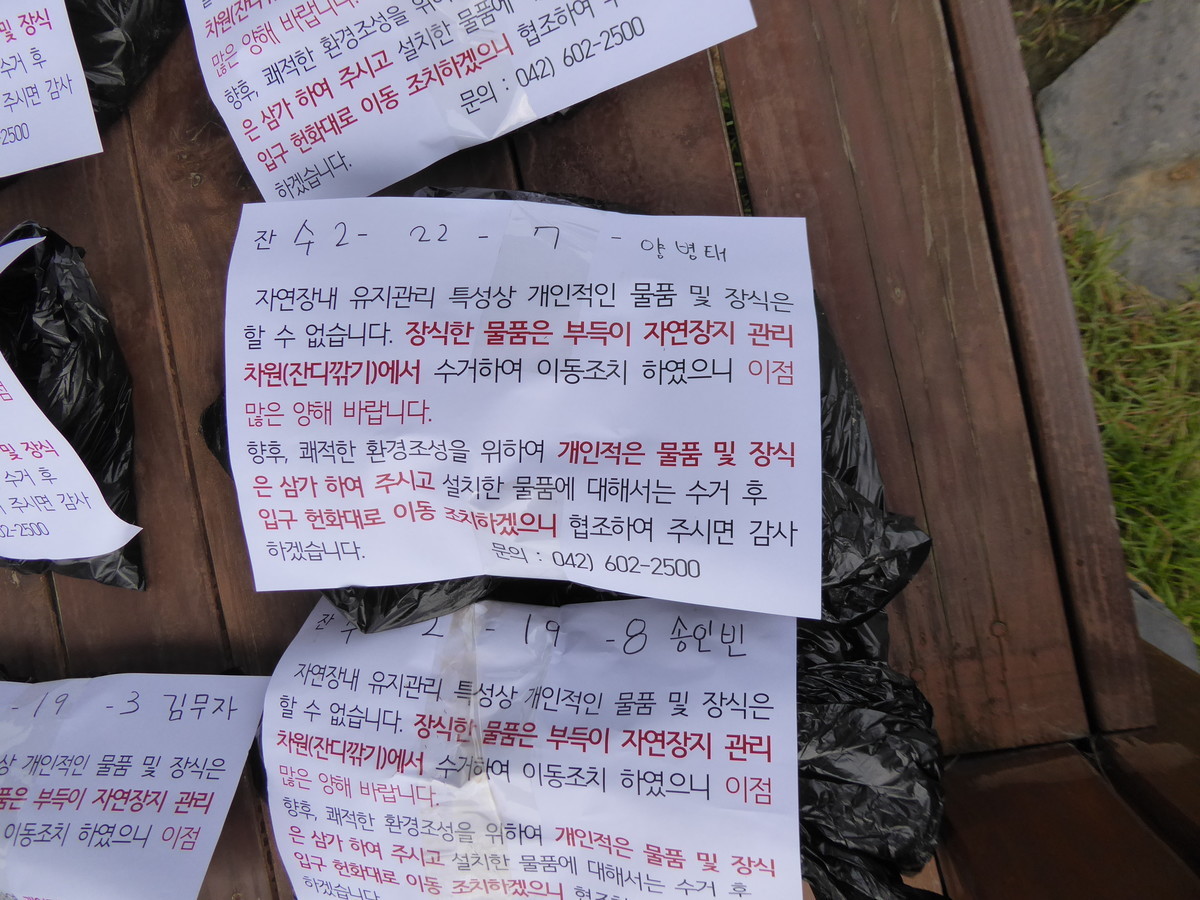 및 장식
수거 후
주시면 감사
-2500
차원(잔디깎기)에서
많은 양해 바랍니다.
향후, 쾌적한 환경조성을 위하여
은 삼가 하여 주시고 설치한 물품에
입구 헌화대로 이동 조치하겠으니 협조하여
하겠습니다. 문의 : 042) 602-2500
잔 수 2 - 22 - 7 - 양병태
자연장내 유지관리 특성상 개인적인 물품 및 장식은
할 수 없습니다. 장식한 물품은 부득이 자연장지 관리
차원(잔디깎기)에서 수거하여 이동조치 하였으니 이점
많은 양해 바랍니다.
향후, 쾌적한 환경조성을 위하여 개인적은 물품 및 장식
은 삼가 하여 주시고 설치한 물품에 대해서는 수거 후
입구 헌화대로 이동 조치하겠으니 협조하여 주시면 감사
하겠습니다. 문의 : 042) 602-2500
및 장식
수거 후
주시면 감사
02-2500
잔 수 2 - 19 - 8 송인빈
자연장내 유지관리 특성상 개인적인 물품 및 장식은
할 수 없습니다. 장식한 물품은 부득이 자연장지 관리
차원(잔디깎기)에서 수거하여 이동조치 하였으니 이점
많은 양해 바랍니다.
향후, 쾌적한 환경조성을 위하여 개인적은 물품 및 장식
은 삼가 하여 주시고 설치한 물품에 대해서는 수거 후
입구 헌화대로 이동 조치하겠으니
하겠습니다
- 19 - 3 김무자
상 개인적인 물품 및 장식은
품은 부득이 자연장지 관리
이동조치 하였으니 이점